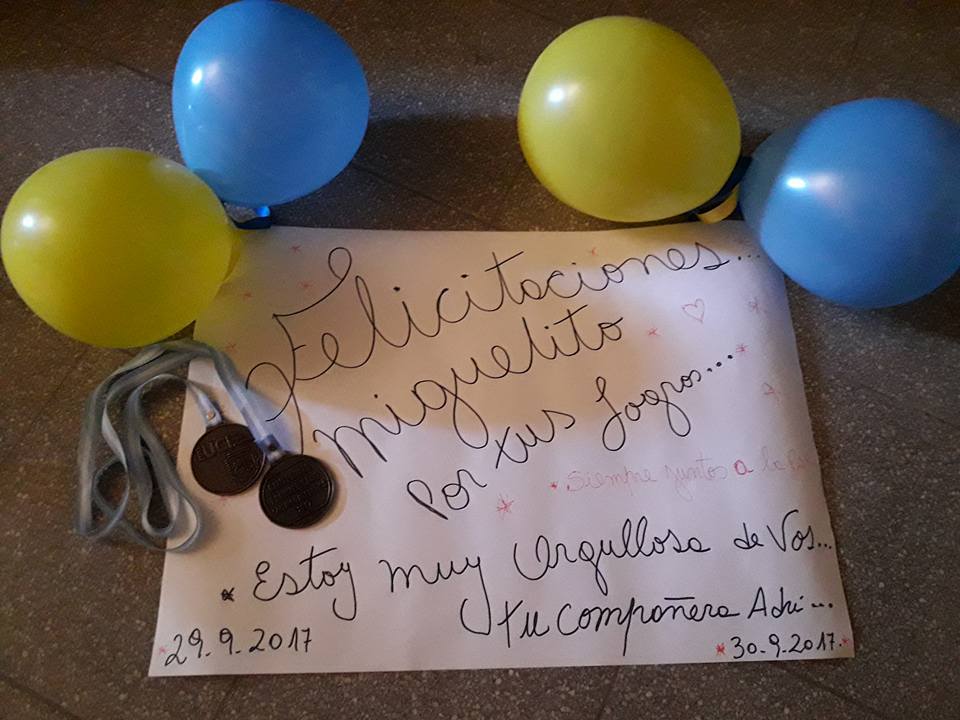 Felicitaciones...
Miguelito
Por tus logros...
siempre juntos a la
* Estoy muy Orgullosa de Vos...
tu compañera Adri...
29-9-2017
* 30-9-2017.